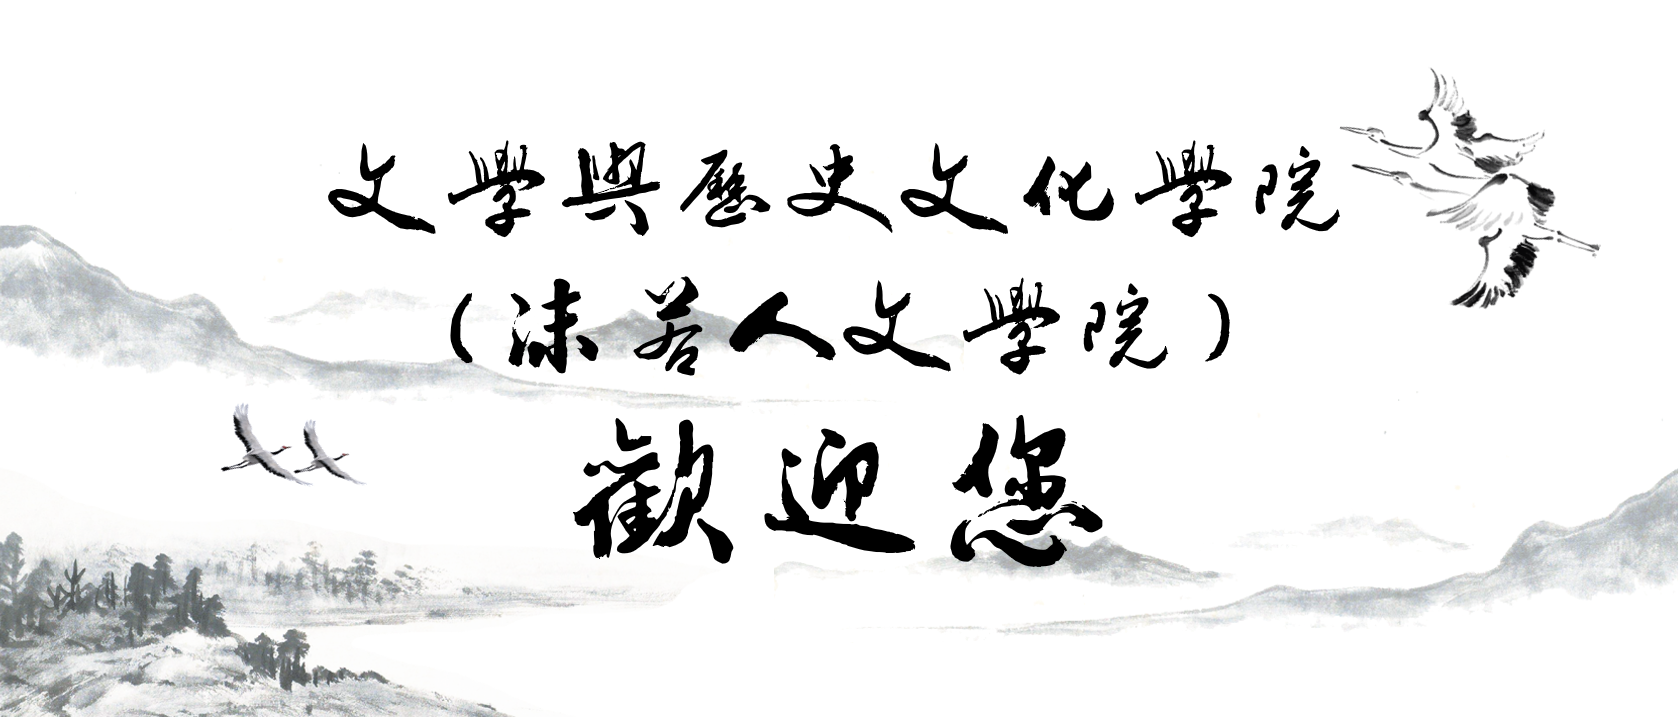 文學與歷史文化學院
(沫若人文學院)
歡迎您